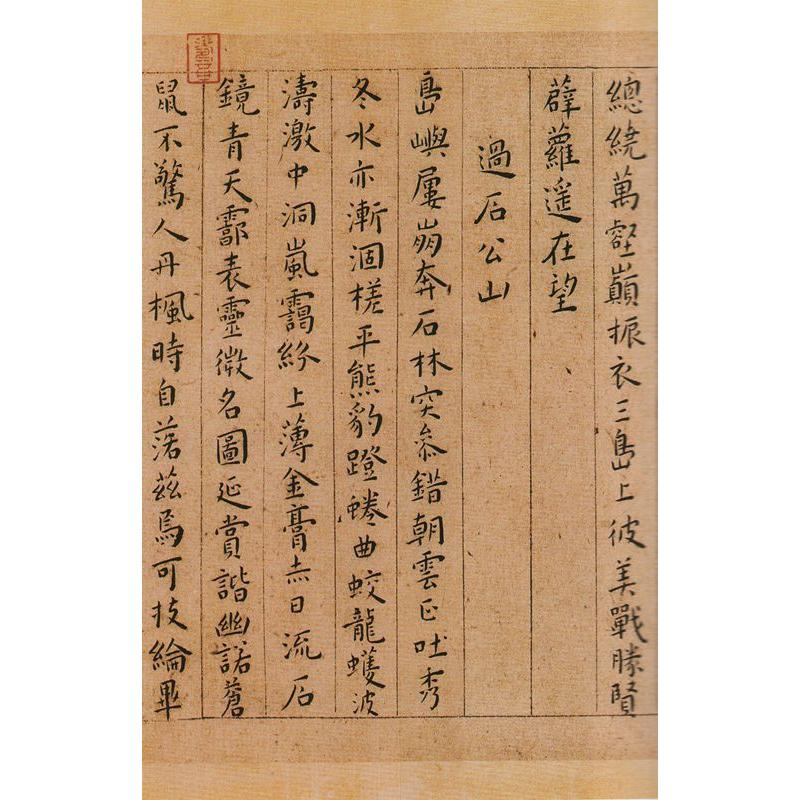 總繞萬壑巔振衣三島上彼美戰勝賢
薜蘿遥在望
過石公山
島嶼屢崩奔石林突參錯朝雲正吐秀
冬水亦漸涸槎平熊豹蹬蜷曲蛟龍蠖波
濤激中洞嵐靄紛上薄金膏赤日流石
鏡青天霩表靈微名圖延賞諧幽諾蒼
鼠不驚人丹楓時自落茲焉可投綸畢